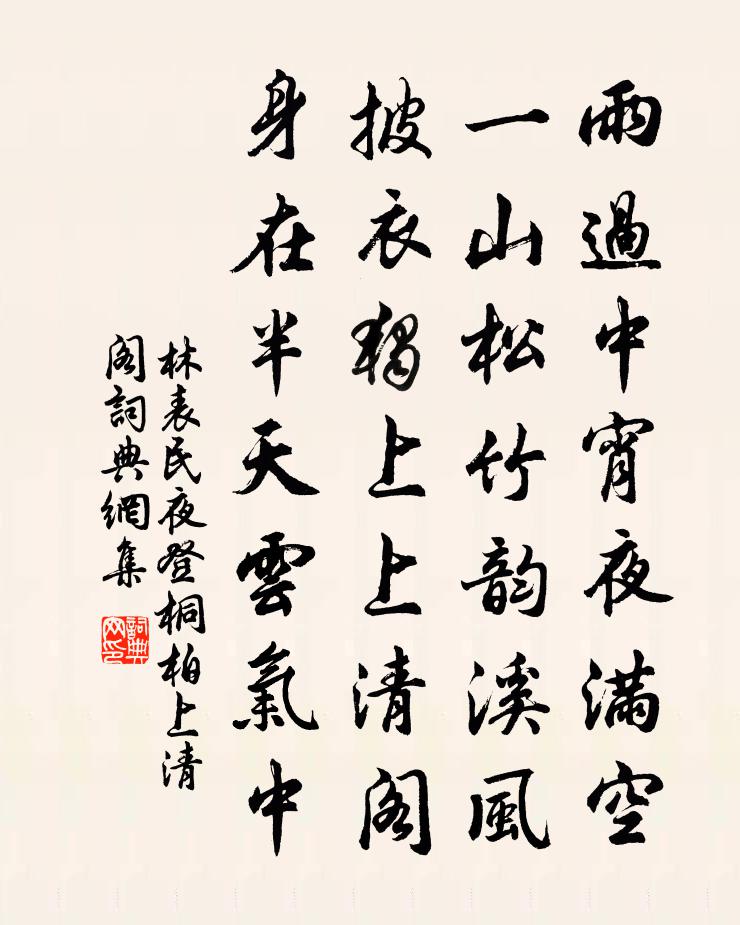 雨過中宵夜滿空
一山松竹韵溪風
披衣獨上上清閣
身在半天雲氣中
林表民夜登桐柏上清
閣詞典網集
詞典
网印